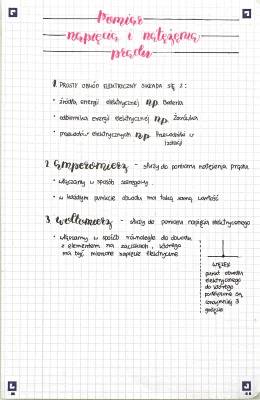 Pomiar
napięcia i natężenia
prądu
1. PROSTY OBWÓD ELEKTRYCZNY SKŁADA SIĘ Z:
• źródła energii elektrycznej np. Bateria
• odbiornika energii elektrycznej np. Żarówka
• przewodów elektrycznych np. Przewodniki w
izolacji
2. amperomierz - służy do pomiaru natężenia prądu
• włączamy w sposób szeregowy.
• w każdym punkcie obwodu ma taką samą wartość
3. woltomierz - służy do pomiaru napięcia elektrycznego
• włączamy w sposób równoległy do obwodu
z elementem na zaciskach, którego
ma być mierzone napięcie elektryczne
WĘZEŁ
punkt obwodu
elektrycznego
do którego
podłączone są
co najmniej 3
gałęzie